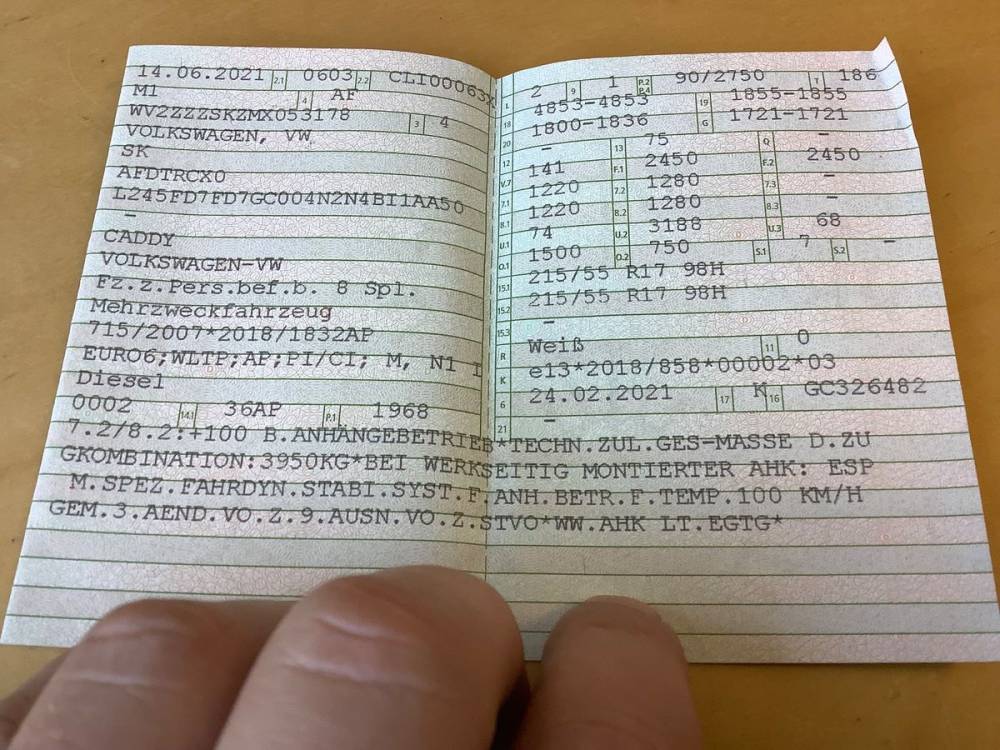 14.06.2021 2.1 0603 2.2 CLI00063X
M1 4 AF
WV2ZZZSKZMX053178 3 4
VOLKSWAGEN, VW
SK
AFDTRCX0
L245FD7FD7GC004N2N4BI1AA50
–
CADDY
VOLKSWAGEN-VW
Fz.z.Pers.bef.b. 8 Spl.
Mehrzweckfahrzeug
715/2007*2018/1832AP
EURO6;WLTP;AP;PI/CI; M, N1 I
Diesel
0002 14.1 36AP P.1 1968
L 2 9 1 P.2 P.4 90/2750 T 186
18 4853-4853 19 1855-1855
20 1800-1836 G 1721-1721
12 – 13 75 Q –
V.7 141 F.1 2450 F.2 2450
7.1 1220 7.2 1280 7.3 –
8.1 1220 8.2 1280 8.3 –
U.1 74 U.2 3188 U.3 68
O.1 1500 O.2 750 S.1 7 S.2 –
15.1 215/55 R17 98H
15.2 215/55 R17 98H
15.3 –
R Weiß 11 0
K e13*2018/858*00002*03
6 24.02.2021 17 K 16 GC326482
21 –
7.2/8.2:+100 B.ANHÄNGEBETRIEB*TECHN.ZUL.GES-MASSE D.ZU
GKOMBINATION:3950KG*BEI WERKSEITIG MONTIERTER AHK: ESP
M.SPEZ.FAHRDYN.STABI.SYST.F.ANH.BETR.F.TEMP.100 KM/H
GEM.3.AEND.VO.Z.9.AUSN.VO.Z.STVO*WW.AHK LT.EGTG*